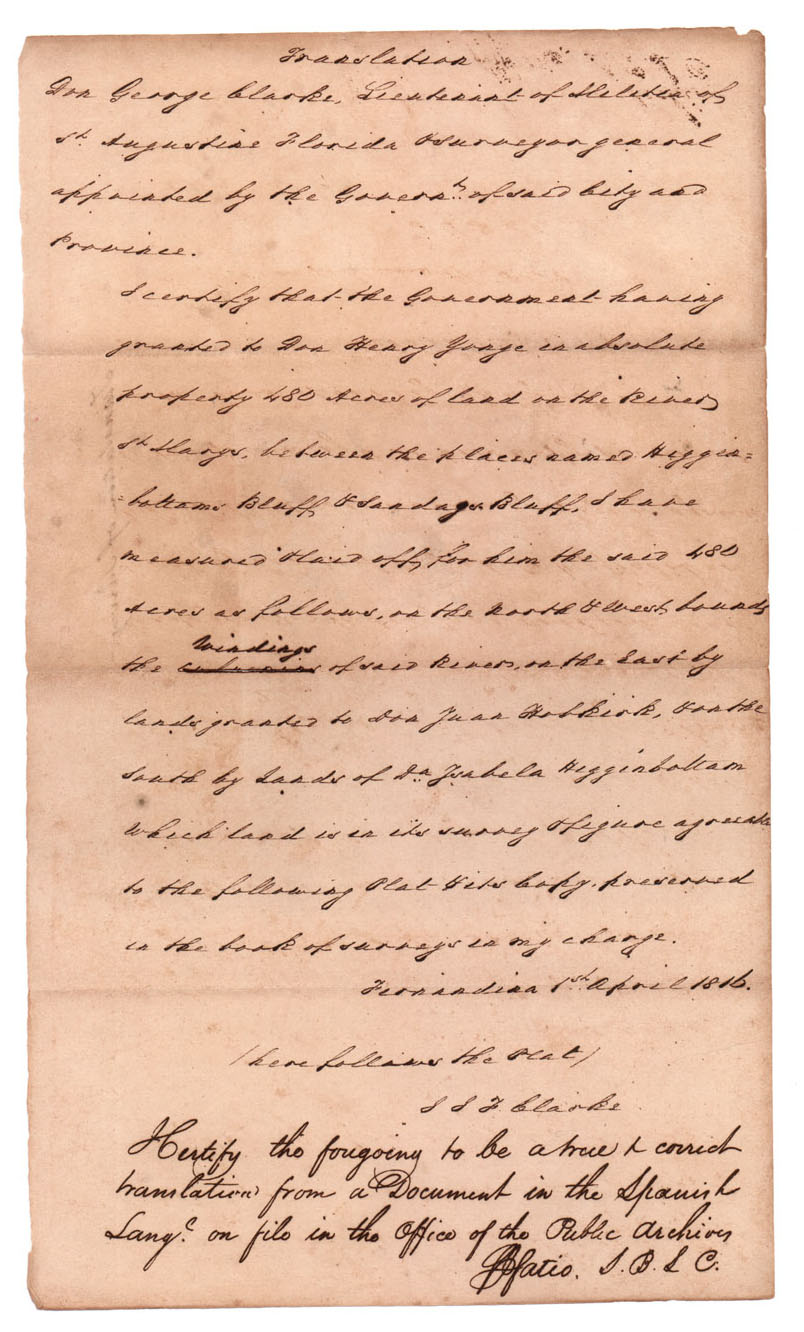 Translation
Don George Clarke, Lieutenant of Militia of
St Augustine Florida & surveyor general
appointed by the Govern.t of said City and
Province.
I certify that the Government having
granted to Don Henry Yonge in absolute
property 480 Acres of land on the River
St Marys, between the places named Higgin=
=bottoms Bluff & Sandays Bluff, I have
measured & laid off, for him the said 480
Acres as follows, on the North & West, bounds
windings
the of said River, on the East by
lands granted to Don Juan Hobkirk, & on the
South by Lands of Da Isabela Higginbottam
Which land is in its survey & figure agreeable
to the following Plat & its Copy, preserved
in the book of surveys in my charge.
Fernandina 1st April 1816.
(here follows the Plat)
Clarke
I Certify the foregoing to be a true & correct
translation from a Document in the Spanish
Lang.e on file in the Office of the Public Archives
Fatio. S. B. L C.